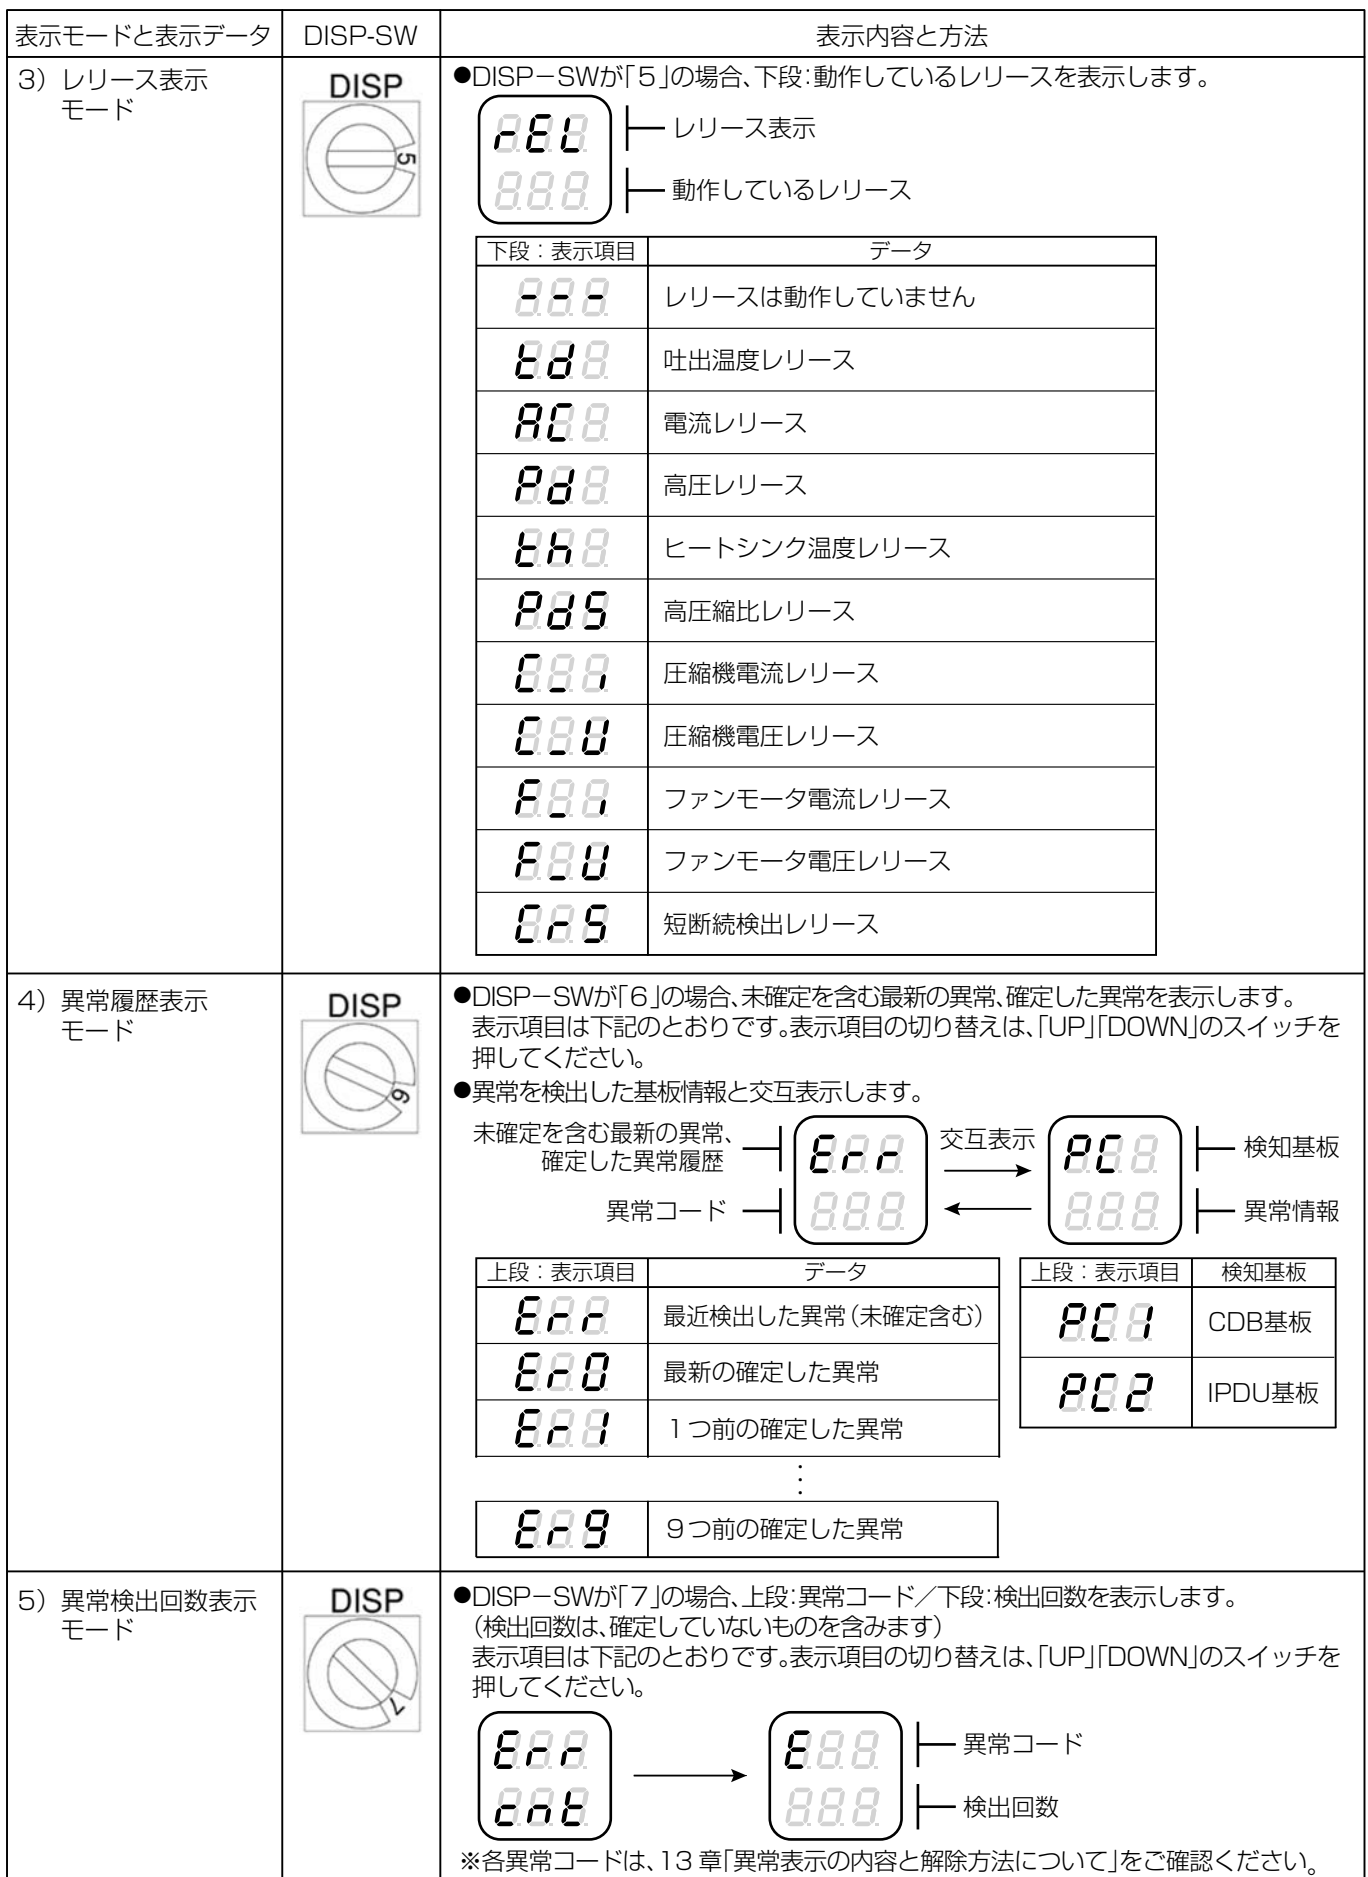 表示モードと表示データ
DISP-SW
表示内容と方法
3）レリース表示
モード
DISP
5
●DISP－SWが「5」の場合、下段：動作しているレリースを表示します。
rEL
レリース表示
動作しているレリース
下段：表示項目
データ
---
レリースは動作していません
td
吐出温度レリース
AC
電流レリース
Pd
高圧レリース
th
ヒートシンク温度レリース
PdS
高圧縮比レリース
C_i
圧縮機電流レリース
C_U
圧縮機電圧レリース
F_i
ファンモータ電流レリース
F_U
ファンモータ電圧レリース
CrS
短断続検出レリース
4）異常履歴表示
モード
DISP
6
●DISP－SWが「6」の場合、未確定を含む最新の異常、確定した異常を表示します。
表示項目は下記のとおりです。表示項目の切り替えは、「UP」「DOWN」のスイッチを
押してください。
●異常を検出した基板情報と交互表示します。
未確定を含む最新の異常、
確定した異常履歴
異常コード
Err
交互表示
PC
検知基板
異常情報
上段：表示項目
データ
Err
最近検出した異常（未確定含む）
Er0
最新の確定した異常
Er1
1つ前の確定した異常
⋮
Er9
9つ前の確定した異常
上段：表示項目
検知基板
PC1
CDB基板
PC2
IPDU基板
5）異常検出回数表示
モード
DISP
7
●DISP－SWが「7」の場合、上段：異常コード／下段：検出回数を表示します。
（検出回数は、確定していないものを含みます）
表示項目は下記のとおりです。表示項目の切り替えは、「UP」「DOWN」のスイッチを
押してください。
Err
cnt
E
異常コード
検出回数
※各異常コードは、13 章「異常表示の内容と解除方法について」をご確認ください。